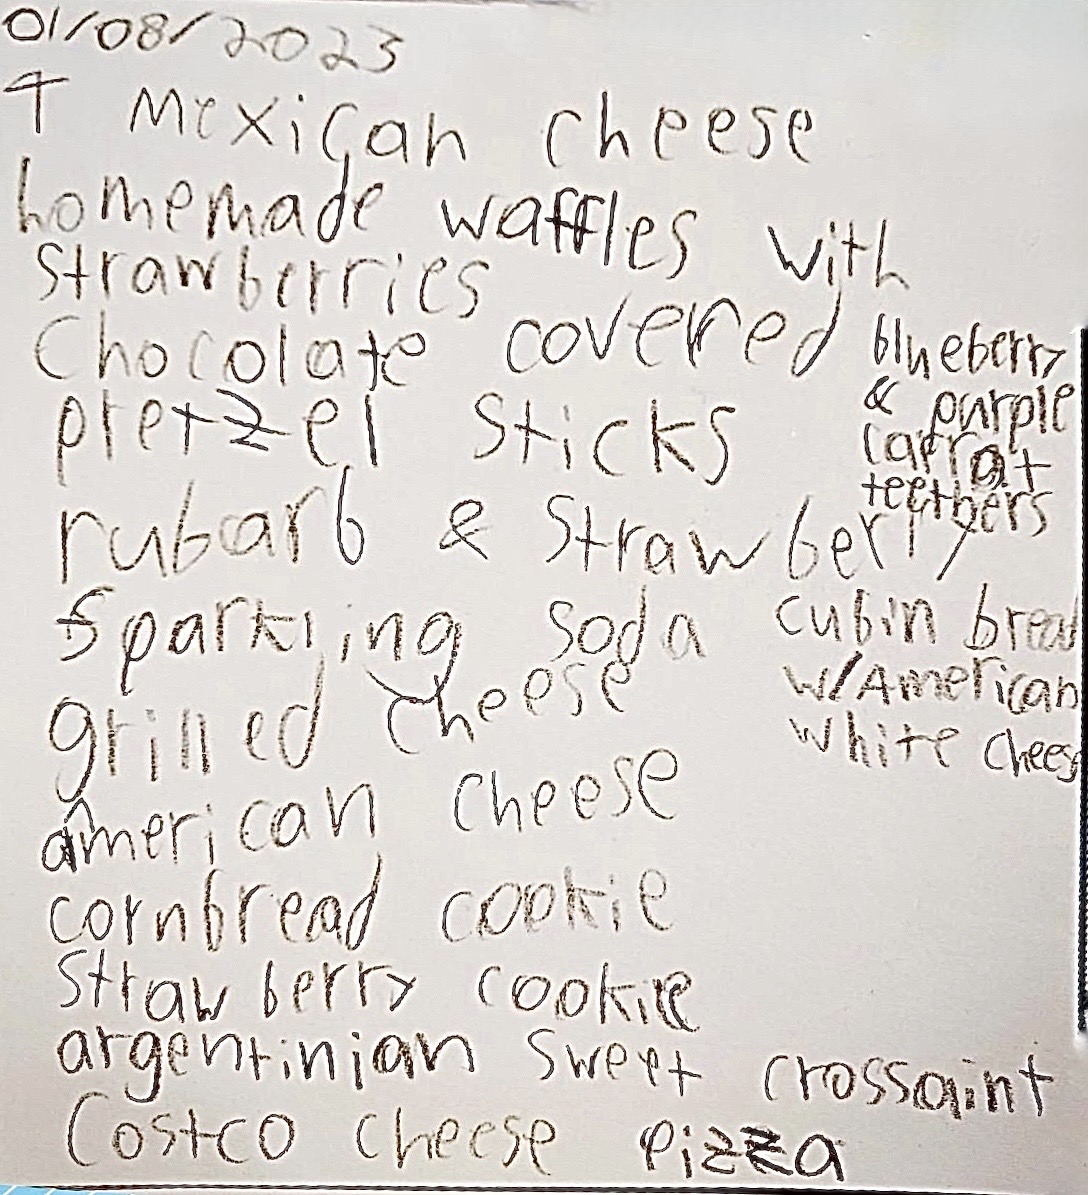 01/08/2023
↑ Mexican cheese
homemade waffles with
strawberries
Chocolate covered
pretzel sticks
rubarb & strawberry
sparkling soda
grilled cheese
american cheese
cornbread cookie
strawberry cookie
argentinian sweet crossaint
Costco cheese pizza
blueberry
& purple
carrot
teethers
cubin bread
w/American
white chees